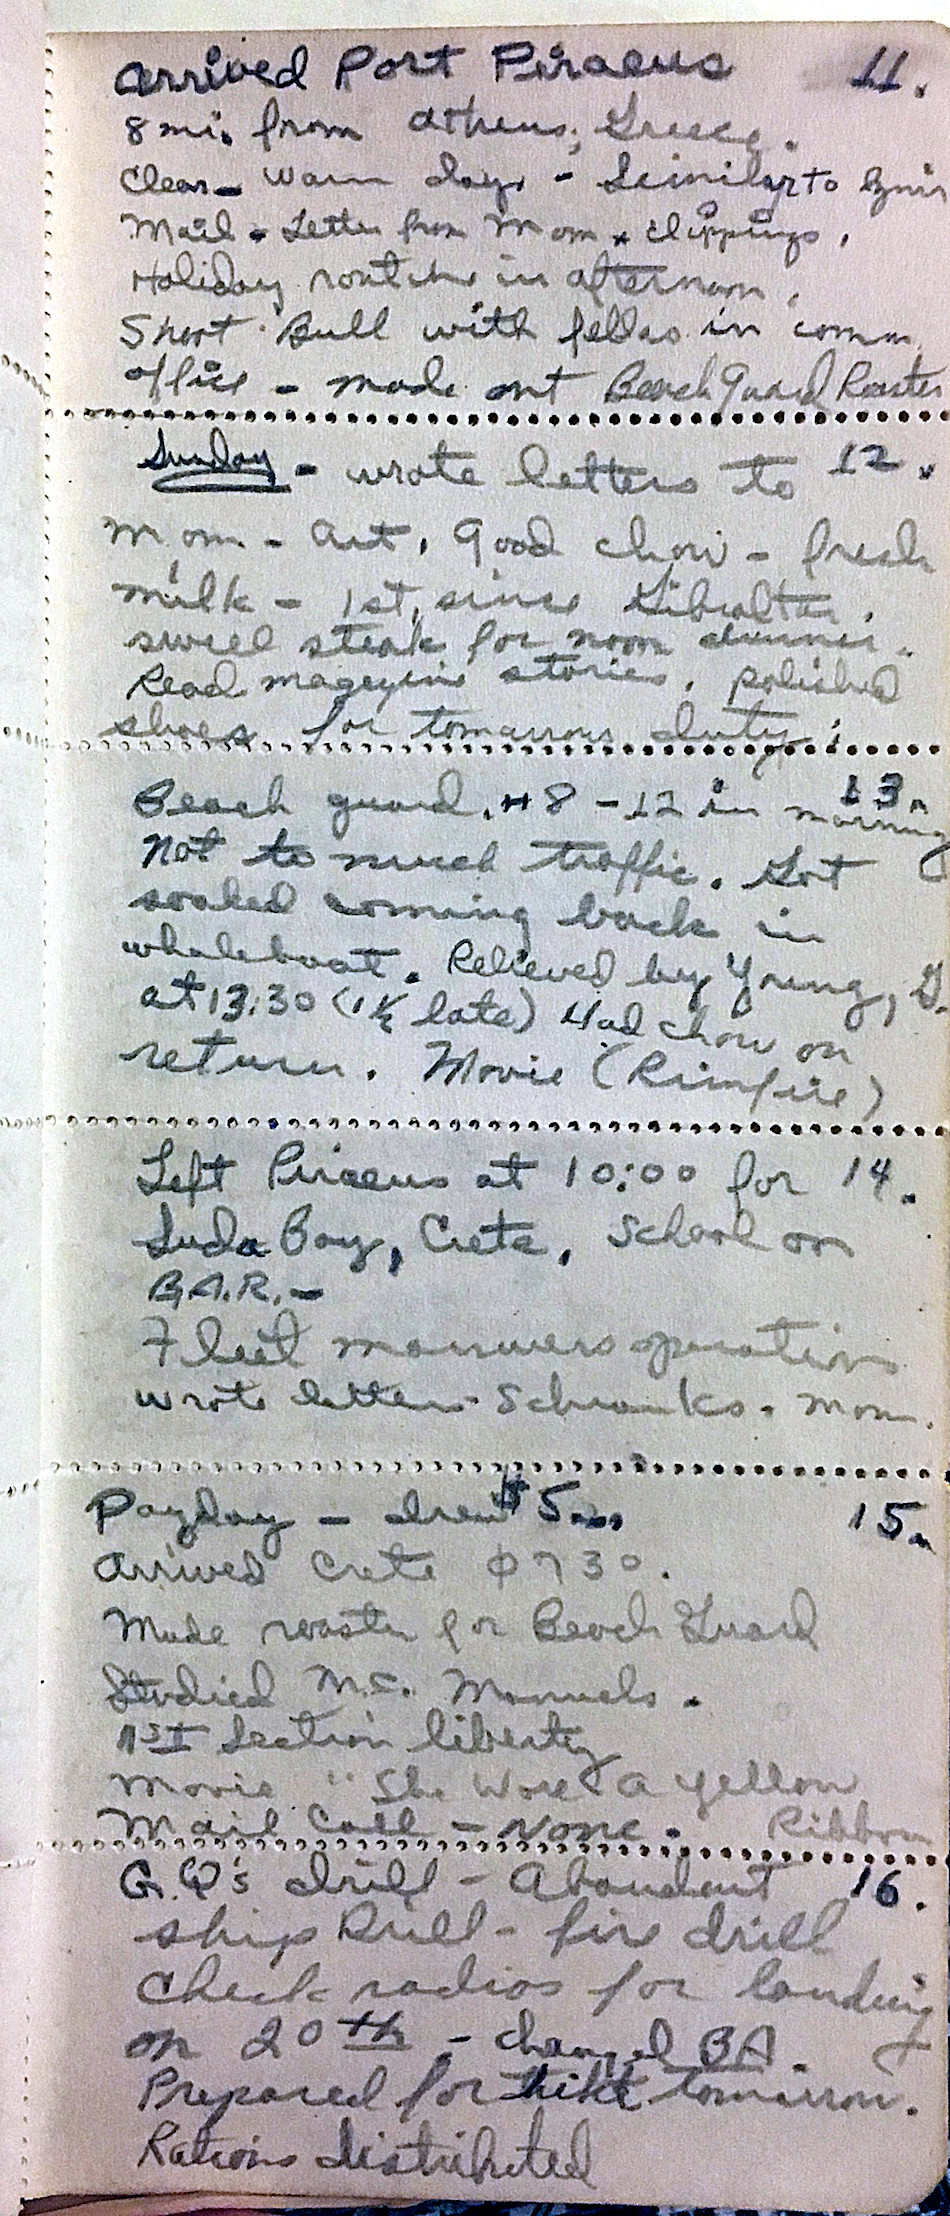 Arrived Port Piraeus 11.
8 mi. from Athens, Greece.
Clear - Warm day - Similar to Izmir
Mail - Letter from Mom & clippings.
Holiday routine in afternoon.
Short Bull with fellas in comm.
office - made out Beach Guard Roaster
Sunday - wrote letters to 12.
Mom - Art, Good chow - fresh
milk - 1st, since Gibralter.
swell steak for noon dinner.
Read magazine stories, polished
shoes for tomorrows duty.
Beach guard, 8 - 12 in morning 13.
Not to much traffic. Got
soaked comming back in
whaleboat. Relieved by Young, G.
at 13:30 (1½ late) Had chow on
return. Movie (Rimfire)
Left Piraeus at 10:00 for 14.
Suda Bay, Crete, School on
B.A.R. -
Fleet manuvers operations
wrote letters - Schranks - Mom.
Payday - drew $5 15.
Arrived Crete 0730.
Made roaster for Beach Guard
Studied M.C. Manuels.
1st Section liberty
Movie "She Wore a Yellow
Mail Call - None. Ribbon
G.Q's drill - Abandont 16.
ship Drill - fire drill
Check radios for landing
on 20th - changed BA.
Prepared for hike tomorrow.
Rations distributed